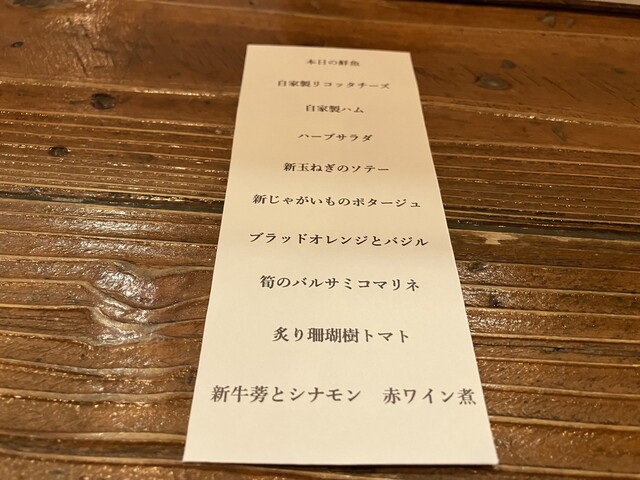 本日の鮮魚
自家製リコッタチーズ
自家製ハム
ハーブサラダ
新玉ねぎのソテー
新じゃがいものポタージュ
ブラッドオレンジとバジル
筍のバルサミコマリネ
炙り珊瑚樹トマト
新牛蒡とシナモン　赤ワイン煮